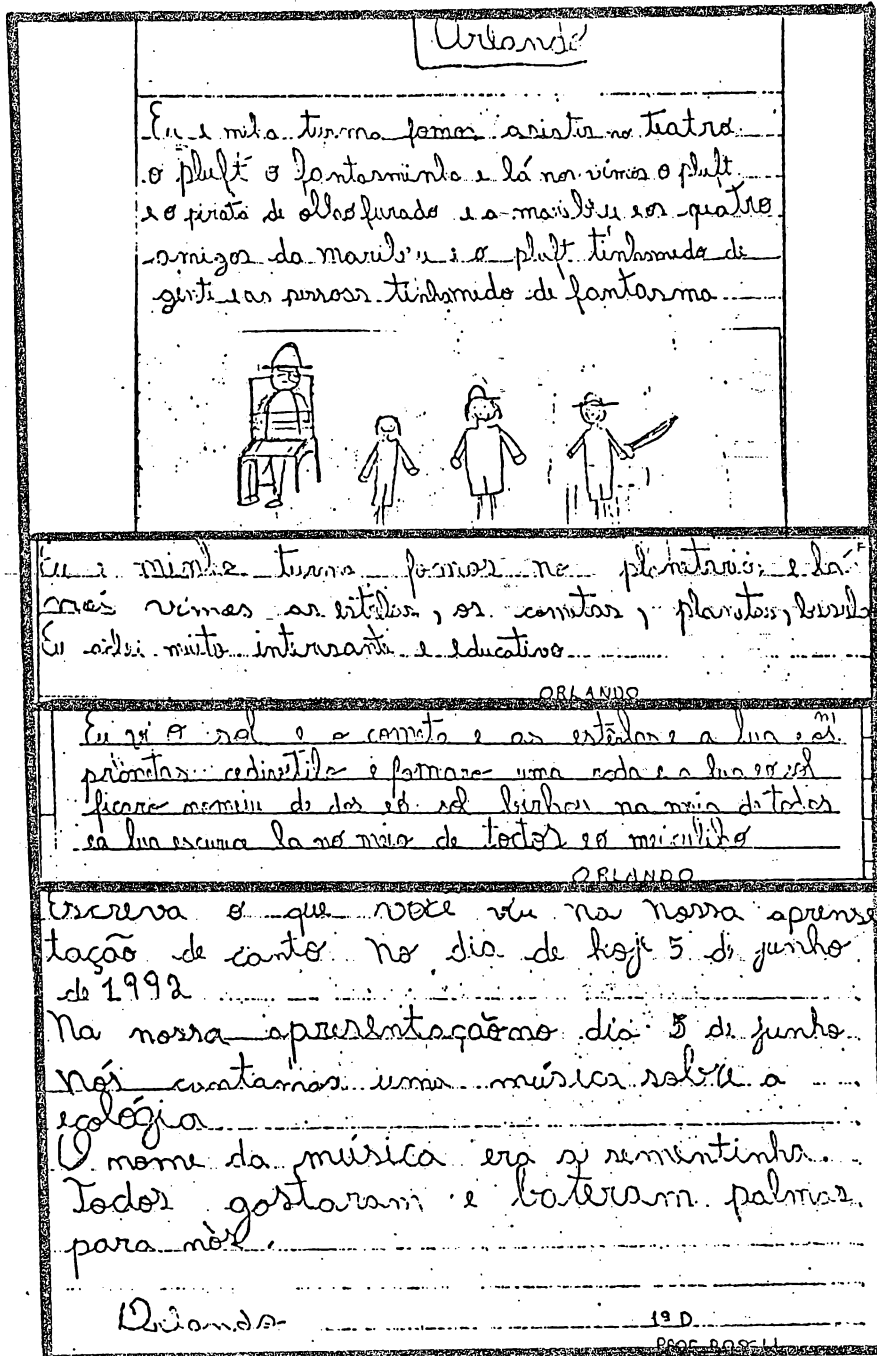 Orlando
Eu e miha turma fomos asistir no teatro
o pluft o fantasminha e lá nos vimos o pluft
e o pirata de olhos furado e a maribeu e os quatro
amigos da maribeu e o pluft tinhamedo de
gente e as pessoas tinhamedo de fantasma
Eu e minha turma fomos no planetario e lá
nós vimos as estelas, os cometas, planetas,
Eu achei muito interesante e educativo
ORLANDO
Eu vi o sol e o cometa e as estêlas e a lua e os
e formaro uma roda e a lua e o sol
ficaro de dos e o sol na meio de todos
e a lua escura la no meio de todos e o
ORLANDO
Escreva o que você viu na nossa aprense
tação de canto no dia de hoje 5 de junho
de 1992
Na nossa apresentaçãono dia 5 de junho
Nós cantamos uma música sobre a
ecológia
O nome da música era a sementinha.
Todos gostaram e bateram palmas
para nòs.
Orlando
1ª D
PROF.